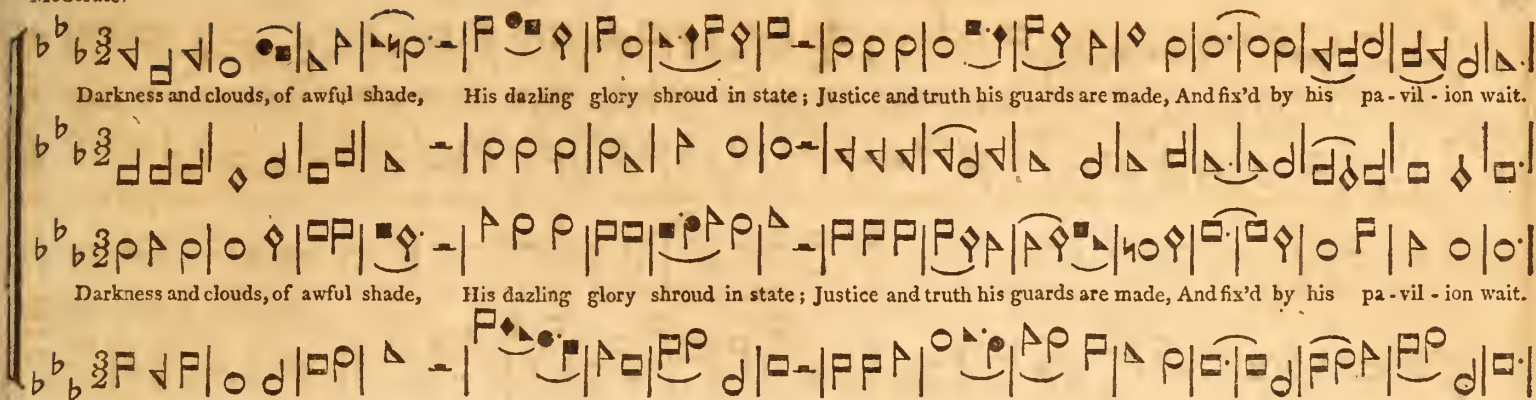 Darkness and clouds, of awful shade, His dazling glory shroud in state; Justice and truth his guards are made, And fix'd by his pa-vil-ion wait.
Darkness and clouds, of awful shade, His dazling glory shroud in state; Justice and truth his guards are made, And fix'd by his pa-vil-ion wait.